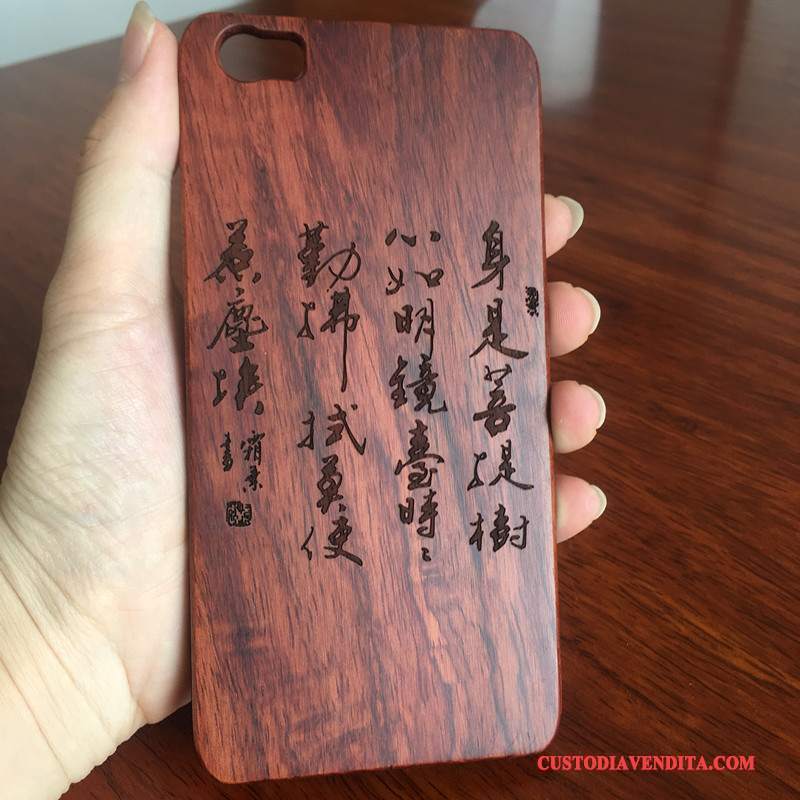 身是菩提樹
心如明鏡臺時〻
勤拂拭莫使
惹塵埃
書
CUSTODIAVENDITA.COM